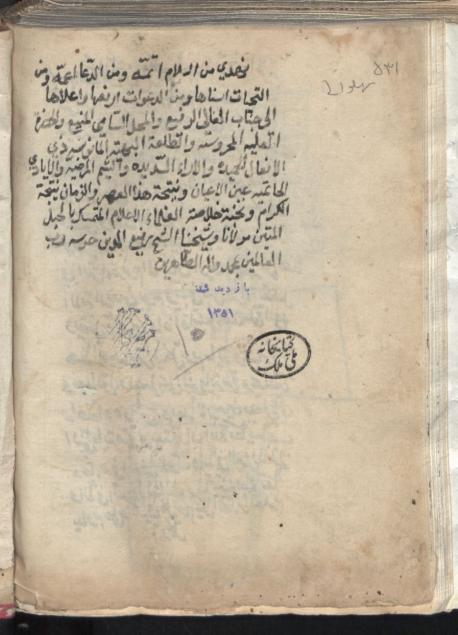 ۵۳۱
ونهدي من السلام اتمّه ومن الدعا اعمّه ومن
التحيات اسناها ومن الدعوات ارفعها واعلاها
الى جناب العالي الرفيع والمحل السامي المنيع والحضرة
العليه المحروسه والطلعة البهيّه المانوسه ذي
الافعال الحميده والاراء السّديده والشيم المرضية والايادي
الحاتميه عين الاعيان ونتيجة هذا العصر والزمان نتيجة
الكرام ونخبة خلاصة العلماء الاعلام المتمسك بالحبل
المتين مولانا وشيخنا الشيخ رفيع الدين حرسه رب
العالمين بمحمد واله الطاهرين
باز دید شد
۱۳۵۱
کتابخانه
ملی ملک